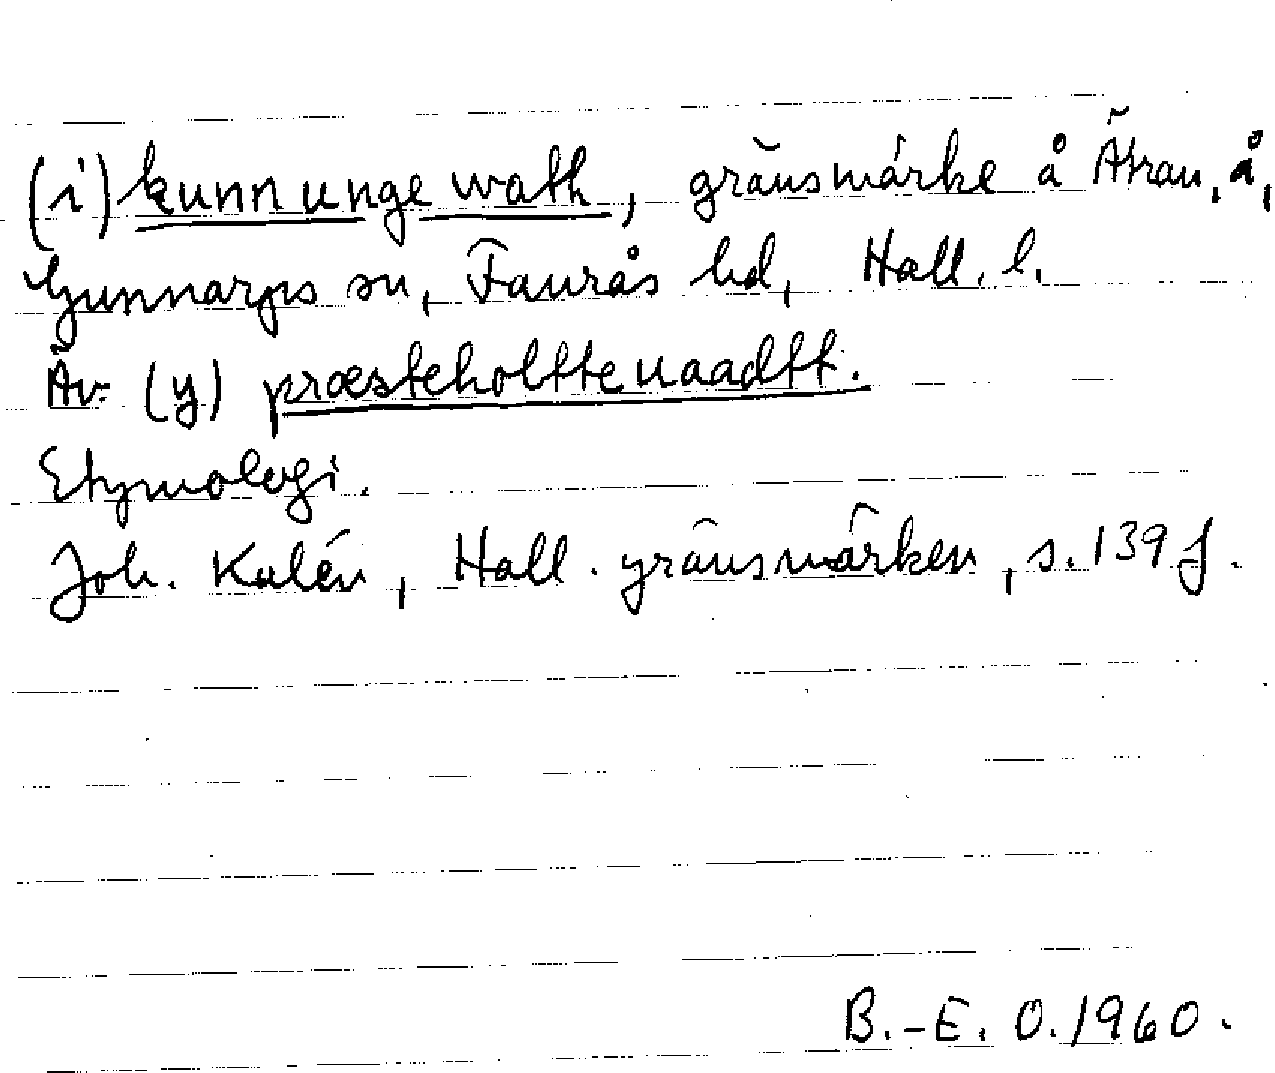 (i) kunnunge wath, gränsmärke å Ätran, å,
Gunnarps sn, Faurås hd, Hall. l.
Äv. (y) præsteholtte uaadtt.
Etymologi.
Joh. Kalén, Hall. gränsmärken, s. 139 f.
B.-E. O. 1960.